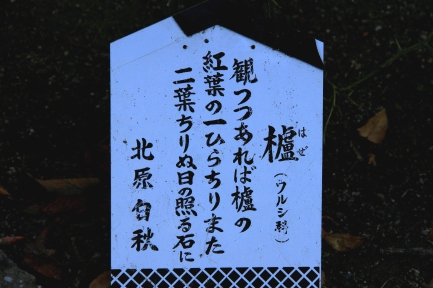 櫨
はぜ
(ウルシ科)
観つつあれば櫨の
紅葉の一ひらちりまた
二葉ちりぬ日の照る石に
北原白秋